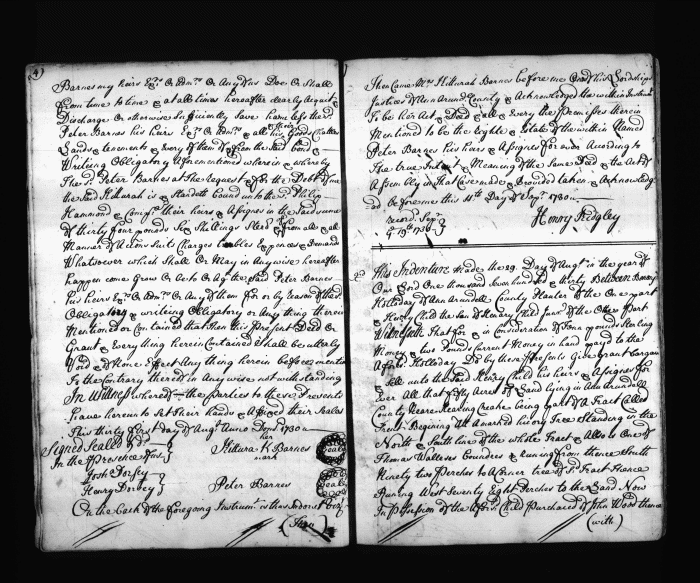 4)
Barnes my heirs Exrs Or Admrs Or Any of us Doe Or Shall
from time to time & at all times hereafter clearly Acquit
Discharge Or otherwise Sufficiently Save harmless the sd
Peter Barnes his heirs Exrs Or Admrs & all his Goods Chattles
Lands tenements & Every of them of & from the Said bond
Writing Obligatory Aforementioned wherein & whereby
The sd Peter Barnes at the request & for the Debt of me
the Said Killurah is & Standeth bound unto the sd Philip
Hammond & Compa their heirs & Assignes in the Said sume
of thirty four pounds Six Shillings Sterl & from all & all
Manner of Actions Suit Charges troubles Expences & Demands
Whatsoever which Shall Or May in Any wise hereafter
happen come Grow Or Acto Or Agt the Said Peter Barnes
his heirs Exrs Or Admrs Or Any of them for or by reason of the sd
Obligatory writing Obligatory or Any thing therein
Mentioned or Contained that then this present Deed or
Grant & Every thing herein Contained Shall be utterly
Void & of None Effect Any thing herein before mention
To the Contrary thereof in Any wise notwithstanding
In Witness whereof the parties to these Presents
have hereunto Set their hands & Affixed their Seales
This thirty first day of Augt Anno Dom 1730
Signed Sealed & dd
In the Presence of us
her
Killurah K Barnes
mark
Seale
Joshs Dorsey
Henry Dorsey
Peter Barnes
Seale
On the Back of the foregoing Instrumt is thus Indorst
(Then)
Then Came Mrs Killurah Barnes before me One of his Lordships
Justices of Ann Arundl County & Acknowledged the within Instrumt
To be her Act & Deed & all & Every the Premisses therein
Mentioned to be the Right & Estate of the within Named
Peter Barnes his heirs & Assignes for ever According to
The true Intent & Meaning of the Same Deed & the Act of
Assembly in that Case made & provided taken & Acknowledg
ed before me this 11th Day of Sepr 1730
Record. Sepr
ye 19th 1730
Henry Ridgley
This Indenture made the 29 Day of Augt in the year of
Our Lord One thousand Seven hundred & thirty Between
Holladay of Ann Arundell County Planter of the One part
& Henry Child the Son of Henry Child junr of the Other part
Witnesseth That for & in Consideration of Tenn pounds Sterling
Money & two pounds Current Money in hand payd to the
Aforsd Holladay Do by these Presents Give Grant Bargain
& Sell unto the Said Henry Child his heirs & Assignes for
Ever All that Fifty Acres of Land lying in Ann Arundell
County Neare Herring Creeke being part of a Tract Called
Trent Begining At a marked hicory Tree Standing in the
North & South line of the whole Tract & Allso is One of
Thomas Wallses Boundres & Runing from thence South
Ninety two Perches to A Corner tree of sd Tract thence
Runing West Seventy Eight Perches to the Land Now
In Possession of the Afd Child Purchased of John Wood thence
(with)